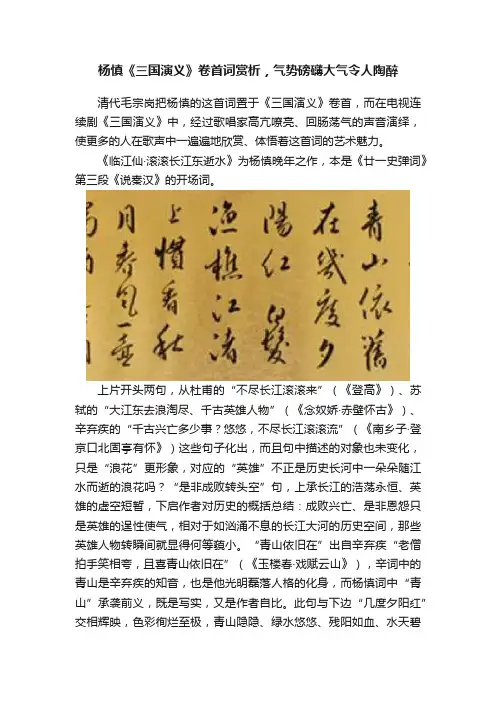 杨慎《三国演义》卷首词赏析，气势磅礴大气令人陶醉
清代毛宗岗把杨慎的这首词置于《三国演义》卷首，而在电视连
续剧《三国演义》中，经过歌唱家高亢嘹亮、回肠荡气的声音演绎，
使更多的人在歌声中一遍遍地欣赏、体悟着这首词的艺术魅力。
《临江仙·滚滚长江东逝水》为杨慎晚年之作，本是《廿一史弹词》
第三段《说秦汉》的开场词。
青山依舊
在幾度夕
陽紅 白髮
漁樵江渚
上慣看秋
月春風一壺
上片开头两句，从杜甫的“不尽长江滚滚来”（《登高》）、苏
轼的“大江东去浪淘尽、千古英雄人物”（《念奴娇·赤壁怀古》）、
辛弃疾的“千古兴亡多少事？悠悠，不尽长江滚滚流”（《南乡子·登
京口北固亭有怀》）这些句子化出，而且句中描述的对象也未变化，
只是“浪花”更形象，对应的“英雄”不正是历史长河中一朵朵随江
水而逝的浪花吗？“是非成败转头空”句，上承长江的浩荡永恒、英
雄的虚空短暂，下启作者对历史的概括总结：成败兴亡、是非恩怨只
是英雄的逞性使气，相对于如汹涌不息的长江大河的历史空间，那些
英雄人物转瞬间就显得何等藐小。“青山依旧在”出自辛弃疾“老僧
拍手笑相夸，且喜青山依旧在”（《玉楼春·戏赋云山》），辛词中的
青山是辛弃疾的知音，也是他光明磊落人格的化身，而杨慎词中“青
山”承袭前义，既是写实，又是作者自比。此句与下边“几度夕阳红”
交相辉映，色彩绚烂至极，青山隐隐、绿水悠悠、残阳如血、水天碧